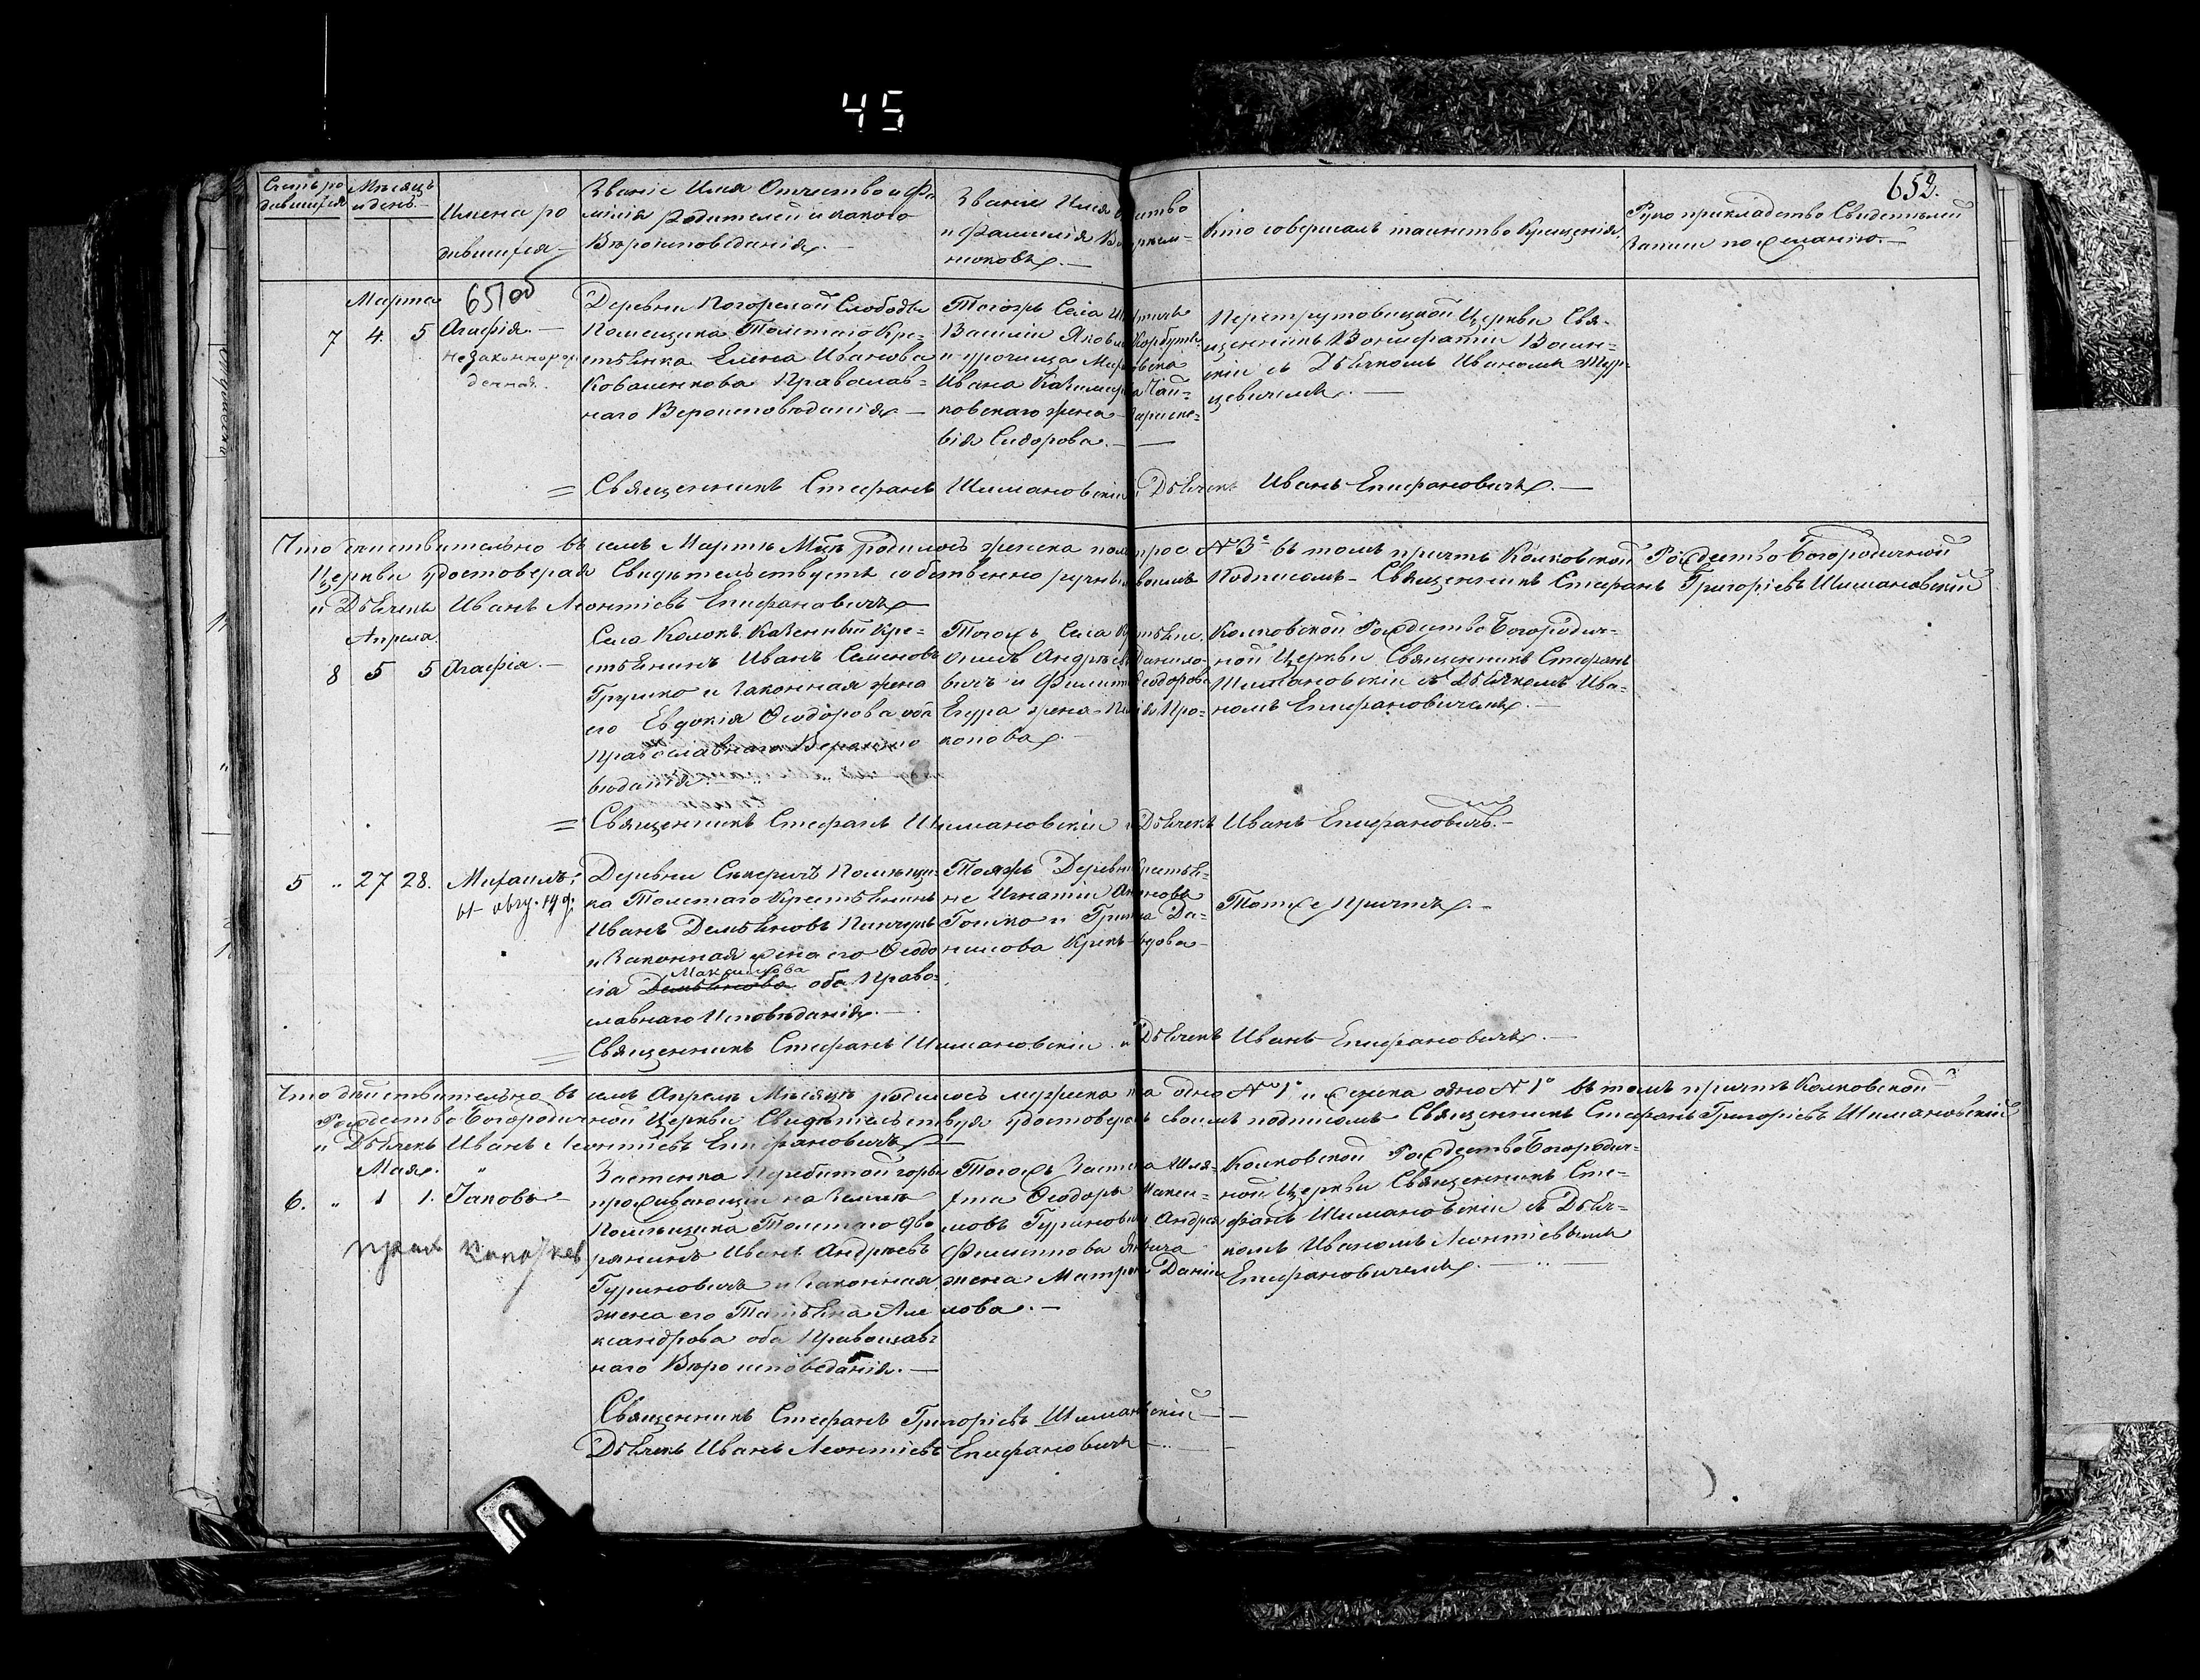 45
652.
Счетъ ро
дившихся
Мѣсяцъ
и день
Имена ро
дившихся
Званіе Имя Отчество и Фа
милія родителей и какого
Вѣроисповѣданія. —
Званіе Имя
и фамилія
никовъ. —
Кто совершалъ таинство Крещенія.
Рукоприкладство Свидетелей
записи по желанію. —
Марта
7 4. 5 Агафія. —
незаконнорож
денная.
Деревни Погорелой Слободы
Помещика Толстаго Кре-
стьянка Елена Иванова
Коваленкова Православ-
наго Вероисповѣданія —
Тогожъ Села
Василій
и урочища
Ивана
ковскаго жена
вія Сидорова. —
Перетрутовицкой Церкви Свя-
щенникъ Вонифатій
скій съ Дьячкомъ Иваномъ
цевичемъ. —
= Священникъ Стефанъ Шимановскій Дьячекъ Иванъ Епифановичъ. —
Что дѣйствительно въ семъ Мартѣ Мцѣ родилось женска пола трое № 3е въ томъ причтъ Колковской Рождество Богородичной
Церкви удостоверяя Свидѣтельствуетъ собственноручнымъ своимъ Подписомъ — Священникъ Стефанъ Григоріевъ Шимановскій
и Дьячекъ Иванъ Леонтіевъ Епифановичъ
Апреля
8 5 5 Агафія. —
Села Колокъ Казенный Кре-
стьянинъ Иванъ Семеновъ
Грушко и законная жена
его Евдокія Ѳеодорова оба
Православнаго Вероиспо
вюданія
Тогожъ Села
Андрѣевъ Данило-
вичъ и Филипа Ѳеодорова
жена Про-
копова.
Колковской Рождество Богородич-
ной Церкви Священникъ Стефанъ
Шимановскій съ Дьячкомъ Ива-
номъ Епифановичемъ. —
= Священникъ Стефанъ Шимановскій и Дьячекъ Иванъ Епифановичъ. —
5 " 27 28. Михаилъ;
Деревни Помѣщи-
ка Толстаго Крестьянинъ
Иванъ Демьяновъ
и Законная жена его Ѳеодо
Максимова
сія Демьянова оба Право-
славнаго Исповѣданія. —
Тояжъ Деревни Крестья-
не Игнатій
Гошко и Да-
нилова
Тотже Причтъ. —
= Священникъ Стефанъ Шимановскій и Дьячекъ Иванъ Епифановичъ. —
Что дѣйствительно въ семъ Апрелѣ Мѣсяцѣ родилось мужеска пола одно № 1е и женска одно № 1е въ томъ причтъ Колковской
Рождество Богородичной Церкви Свидѣтельствуя удостоверяетъ своимъ подписомъ Священникъ Стефанъ Григоріевъ Шимановскій
и Дьячекъ Иванъ Леонтіевъ Епифановичъ
Мая.
6. " 1 1. Іаковъ —
Застенка Перебитой горы
проживающій на землѣ
Помѣщика Толстаго дво
рянинъ Иванъ Андреевъ
Гуриновичъ и Законная
жена его Татьяна Але
ксандрова оба Православ-
наго Вѣроисповеданія. —
Тогожъ Застенка Шля-
хта Ѳеодоръ Макси-
мовъ Гуриновичъ Андрея
Филиппова
жена Матрона Дани
лова. —
Колковской Рождество Богородич-
ной Церкви Священникъ Сте-
фанъ Шимановскій съ Дьяч-
комъ Иваномъ Леонтіевымъ
Епифановичемъ. —
Священникъ Стефанъ Григоріевъ Шимановскій —
Дьячекъ Иванъ Леонтіевъ Епифановичъ —